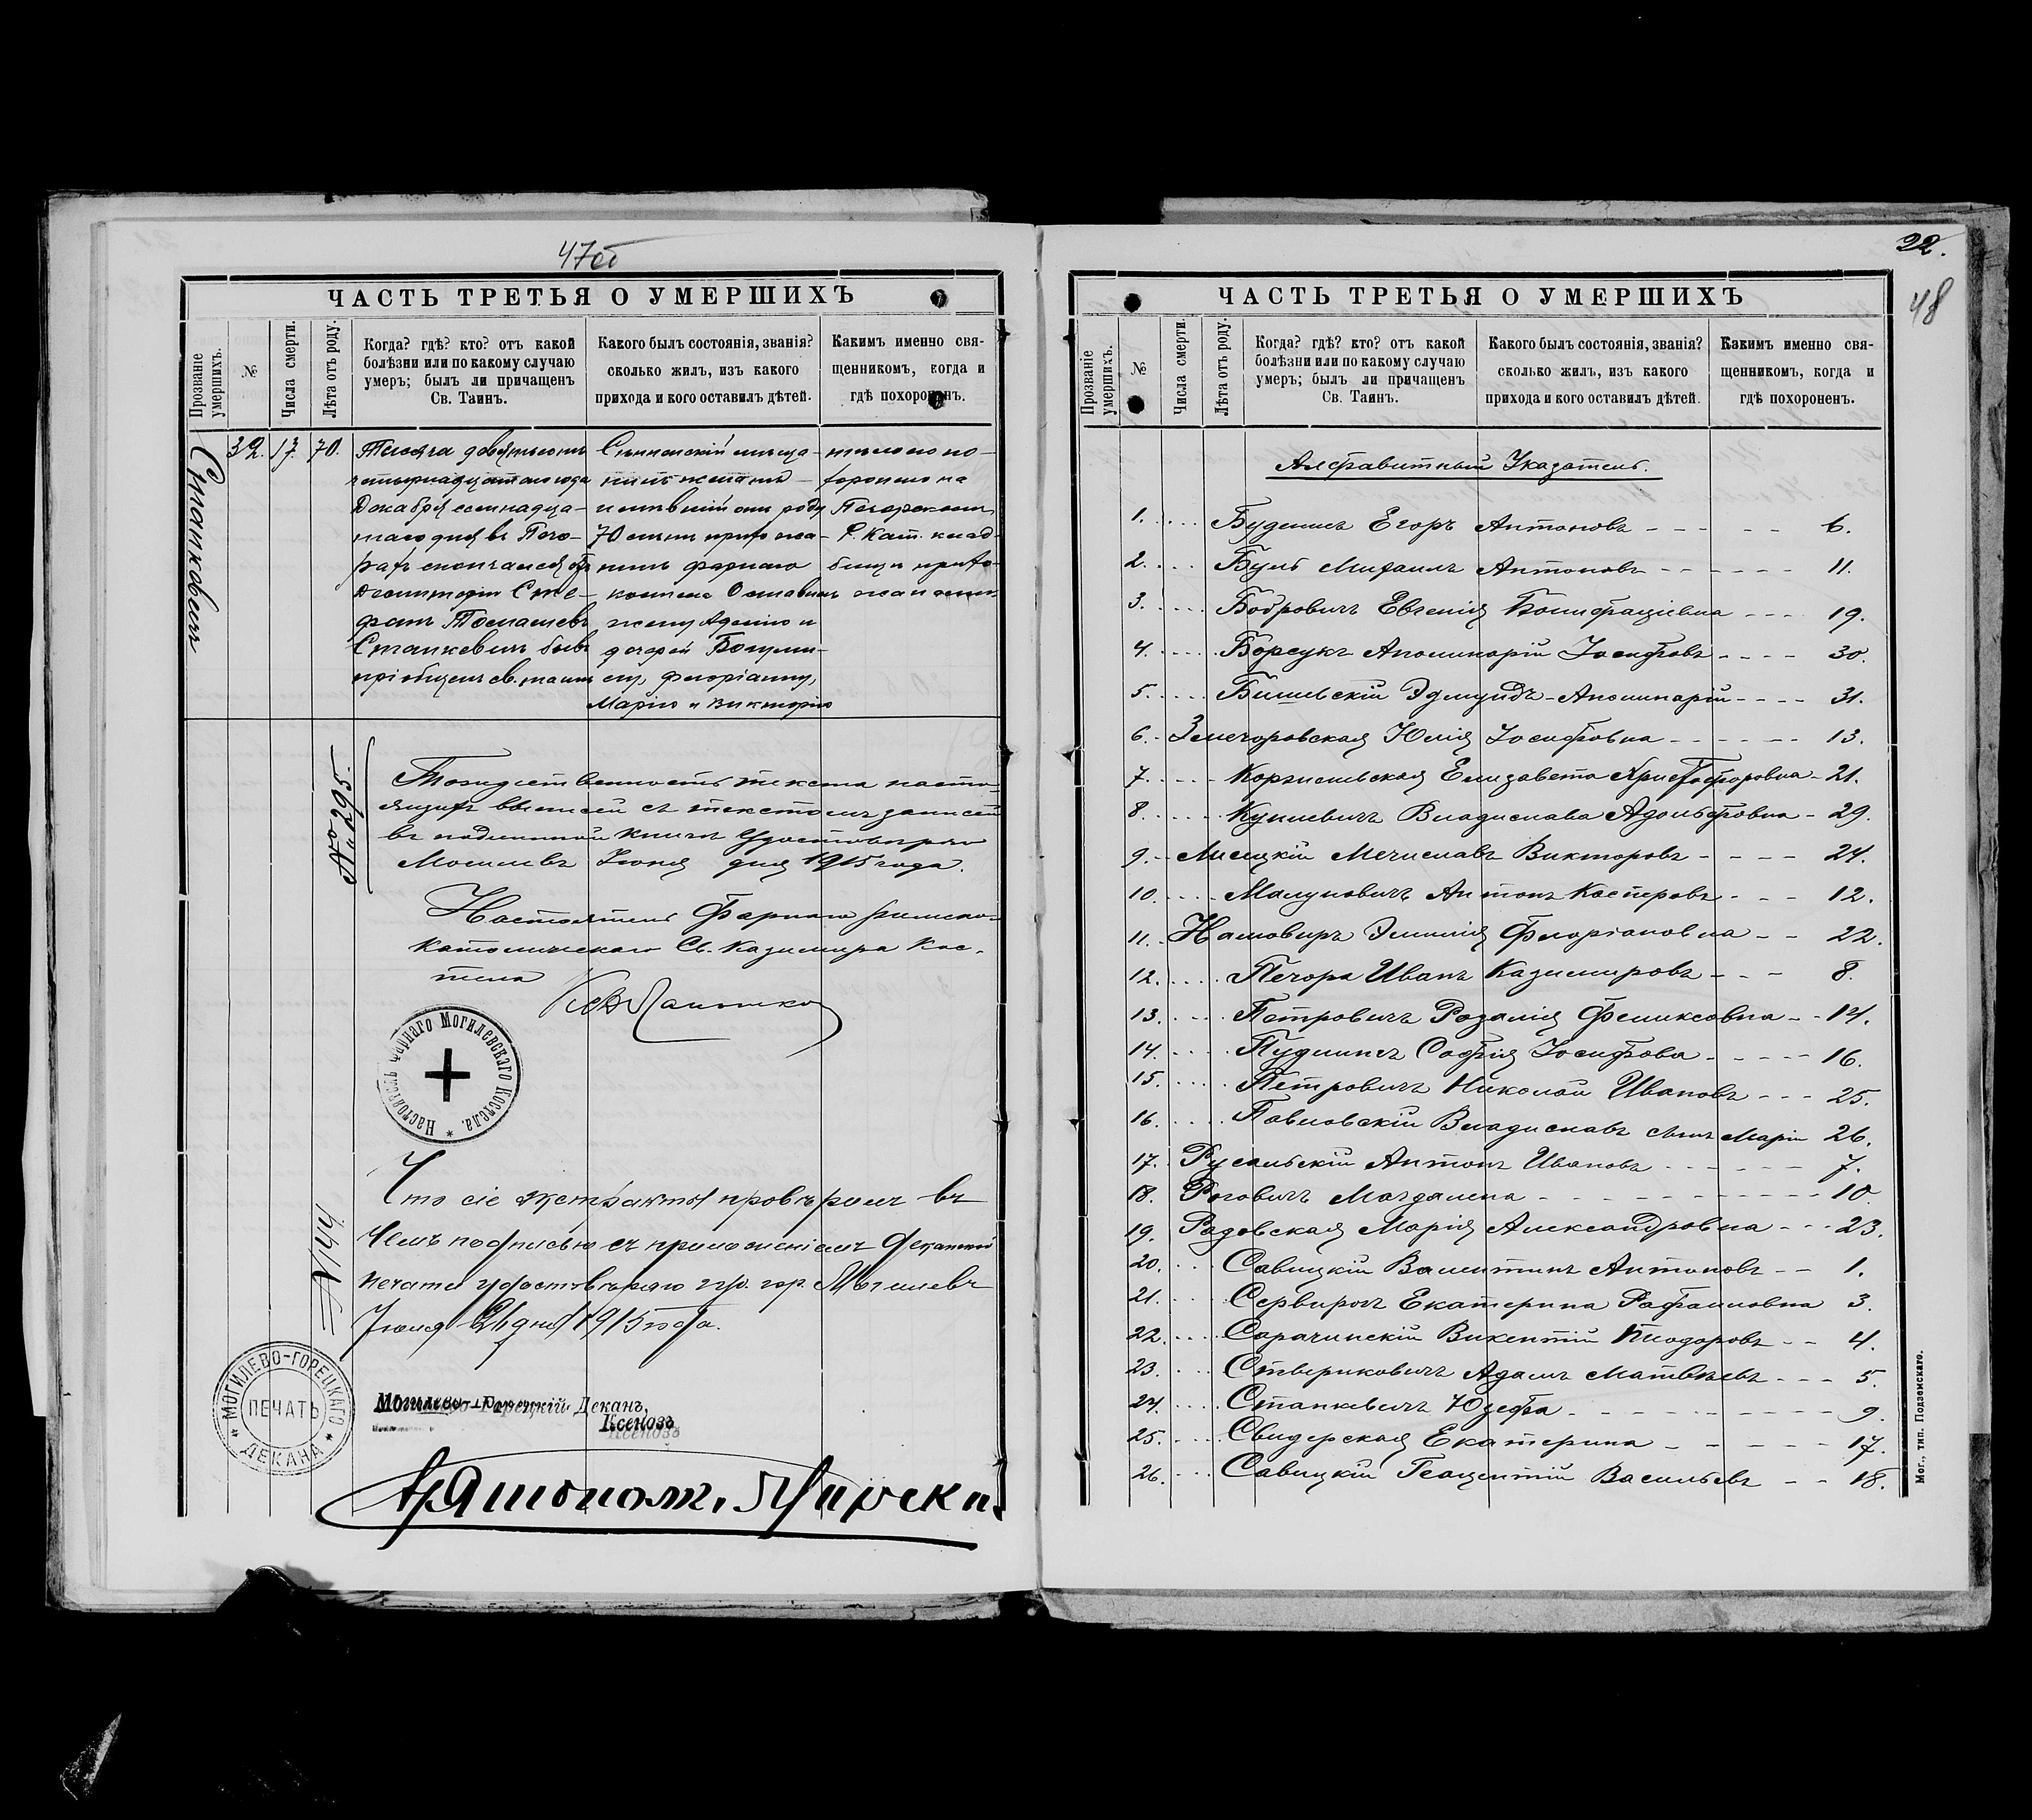 47об
ЧАСТЬ ТРЕТЬЯ О УМЕРШИХЪ
Прозваніе умершихъ.
№
Числа смерти.
Лѣта отъ роду.
Когда? гдѣ? кто? отъ какой
болѣзни или по какому случаю
умеръ; былъ ли причащенъ
Св. Таинъ.
Какого былъ состоянія, званія?
сколько жилъ, изъ какого
прихода и кого оставилъ дѣтей.
Какимъ именно свя-
щенникомъ, когда и
гдѣ похороненъ.
Станкевичъ
32. 17. 70.
Тысяча девятьсотъ
четырнадцатаго года
Декабря семнадца-
таго дня въ Печо-
рахъ скончался отъ
дезинтеріи Сте-
фанъ Томашевъ
Станкевичъ бывъ
пріобщенъ св. таинъ
Сѣннскій мѣща-
нинъ женатъ
имѣвшій отъ роду
70 лѣтъ прихожа-
нинъ фарнаго
костела Оставилъ
жену Аделію и
дочерей Богуми-
лу, Флоріанну,
Марію и Викторію
тѣло его по-
хоронено на
Печорскомъ
Р. Кат. клад-
бищѣ прихо-
жанами
№ 295.
Тождественность текста насто-
ящихъ выписей съ текстомъ записей
въ подлинной книгѣ удостовѣряю
Могилевъ Іюня дня 1915 года.
Настоятель Фарнаго римско-
католическаго Св. Казимира Кос-
тела
Настоятель Фарнаго Могилевскаго Костела.
№ 144
Что сіе экстрактъ провѣренъ въ
чемъ подписью съ приложеніемъ Деканской
печати удостовѣряю гор. Могилевъ
Іюля 26 дня 1915 года.
МОГИЛЕВО-ГОРЕЦКАГО ДЕКАНА
ПЕЧАТЬ
Могилево-Горецкій Деканъ,
Ксендзъ
22.
48
ЧАСТЬ ТРЕТЬЯ О УМЕРШИХЪ
Прозваніе умершихъ.
№
Числа смерти.
Лѣта отъ роду.
Когда? гдѣ? кто? отъ какой
болѣзни или по какому случаю
умеръ; былъ ли причащенъ
Св. Таинъ.
Какого былъ состоянія, званія?
сколько жилъ, изъ какого
прихода и кого оставилъ дѣтей.
Какимъ именно свя-
щенникомъ, когда и
гдѣ похороненъ.
Алфавитный Указатель.
1. Буденисъ Егоръ Антоновъ 6.
2. Буль Михаилъ Антоновъ 11.
3. Бобровичъ Евгенія Бонифаціевна 19.
4. Борсукъ Аполинарій Іосифовъ 30.
5. Билевскій Эдмундъ-Аполинарій 31.
6. Змечоровская Юлія Іосифовна 13.
7. Коржилевская Елизавета Христофоровна 21.
8. Куплевичъ Владислава Адольфовна 29.
9. Лисецкій Мечиславъ Викторовъ 24.
10. Малуновичъ Антонъ Касперовъ 12.
11. Намовиръ Эмилія Флоріановна 22.
12. Печора Иванъ Казимировъ 8.
13. Петровичъ Розалія Феликсовна 14.
14. Пудлинсъ Софія Іосифова 16.
15. Петровичъ Николай Ивановъ 25.
16. Павловскій Владиславъ сынъ Маріи 26.
17. Русальскій Антонъ Ивановъ 7.
18. Роговичъ Магдалена 10.
19. Радовская Марія Александровна 23.
20. Савицкій Валентинъ Антоновъ 1.
21. Сервировъ Екатерина Рафаиловна 3.
22. Сарачинскій Викентій Теодоровъ 4.
23. Ствериковичъ Адамъ Матвѣевъ 5.
24. Станкевичъ Юзефа 9.
25. Свидерская Екатерина 17.
26. Савицкій Геацентій Васильевъ 18.
Мог., тип. Подземскаго.